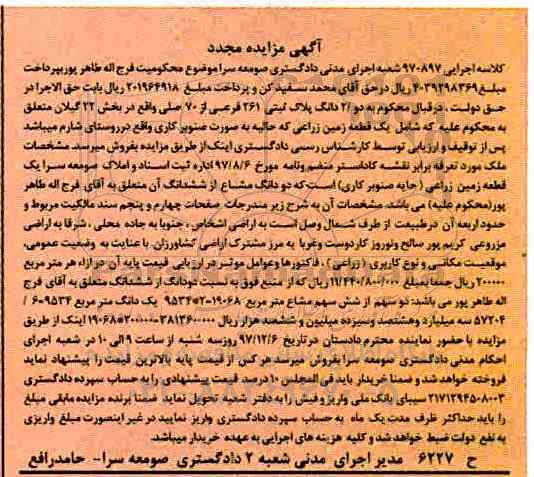 آگهی مزایده مجدد
کلاسه اجرایی ۹۷۰۸۹۷ شعبه اجرای مدنی دادگستری صومعه سرا موضوع محکومیت فرج اله طاهر پور بپرداخت
مبلغ ۴۰۳۹۲۹۸۳۶۹ ریال در حق آقای محمد سفید کن و پرداخت مبلغ ۲۰۱۹۶۴۹۱۸ ریال بابت حق الاجرا در
حق دولت ، در قبال محکوم به دو /۲ دانگ پلاک ثبتی ۲۶۱ فرعی از ۷۰ صلی واقع در بخش ۲۲ گیلان متعلق
به محکوم علیه که شامل یک قطعه زمین زراعی که حالیه به صورت صنوبر کاری واقع در روستای شارم میباشد
پس از توقیف و ارزیابی توسط کارشناس رسمی دادگستری اینک از طریق مزایده بفروش میرسد. مشخصات
ملک مورد تعرفه برابر نقشه کاداستر منضم ونامه مورخ ۹۷/۸/۶ اداره ثبت اسناد و املاک صومعه سرا یک
قطعه زمین زراعی ( حایه صنوبر کاری) است که دو دانگ مشاع از ششدانگ آن متعلق به آقای فرج اله طاهر
پور(محکوم علیه) می باشد. مشخصات آن به شرح زیر مندرجات صفحات چهارم و پنجم سند مالکیت مربوط و
حدود اربعه آن در طبیعت از طرف شمال وصل است به اراضی اشخاص ، جنوبا به جاده محلی ، شرقا به اراضی
مزروعی کریم پور صالح ونوروز کاردوست وغربا به مرز مشترک اراضی کشاورزان. با عنایت به وضعیت عمومی،
موقعیت مکانی و نوع کاربری (زراعی) ، فاکتورها وعوامل موثر در ارزیابی قیمت پایه آن در ازاء هر متر مربع
۲۰۰۰۰۰ ریال جمعا بمبلغ ۱۱/۴۴۰/۸۰۰/۰۰۰ ریال که از منبع فوق به نسبت دودانگ از ششدانگ متعلق به آقای فرج
اله طاهر پور می باشد: دو سهم از شش سهم مشاع متر مربع ۱۹۰۶۸=۲*۹۵۳۴ یک دانگ متر مربع ۹۵۳۴=۶ /
۵۷۲۰۴ سه میلیارد وهشتصد وسیزده میلیون و ششصد هزار ریال ۳۸۱۳۶۰۰۰۰۰=۲۰۰۰۰۰*۱۹۰۶۸ اینک از طریق
مزایده با حضور نماینده محترم دادستان در تاریخ ۹۷/۱۲/۶ روز سه شنبه از ساعت ۹ الی ۱۰ در شعبه اجرای
احکام مدنی دادگستری صومعه سرا بفروش میرسد هر کس از قیمت پایه بالاترین قیمت را پیشنهاد نماید
فروخته خواهد شد و ضمنا خریدار باید فی المجلس ۱۰ درصد قیمت پیشنهادی را به حساب سپرده دادگستری
۲۱۷۱۲۹۴۵۰۸۰۰۳ سیبای بانک ملی واریز و فیش را به دفتر شعبه تحویل نماید ضمنا برنده مزایده مابقی مبلغ
را باید حداکثر ظرف مدت یک ماه به حساب سپرده دادگستری واریز نمایید در غیر اینصورت مبلغ واریزی
به نفع دولت ضبط خواهد شد و کلیه هزینه های اجرایی به عهده خریدار میباشد.
ح ۶۲۲۷ مدیر اجرای مدنی شعبه ۲ دادگستری صومعه سرا- حامد رافع